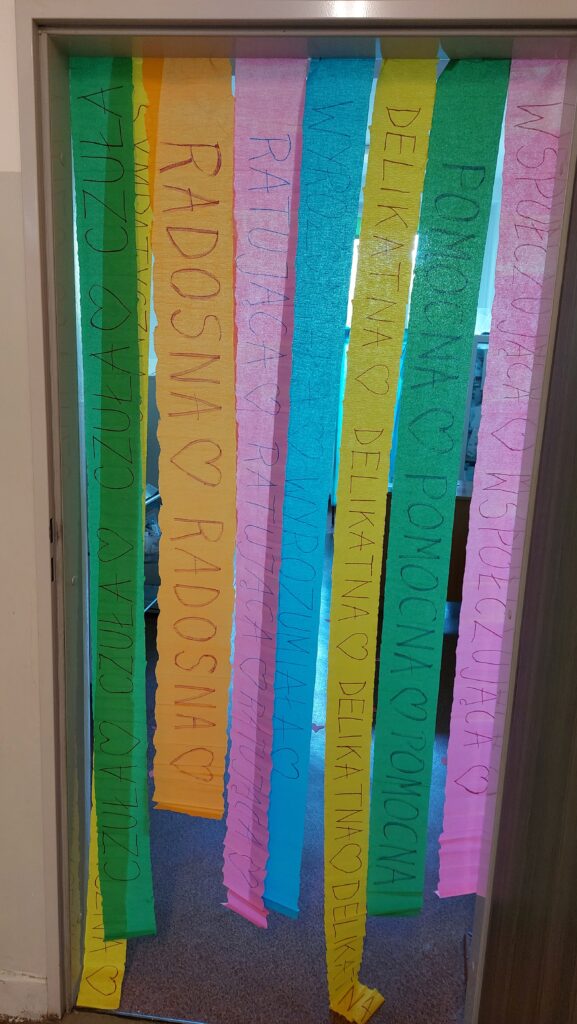 CZUŁA ♡ CZUŁA ♡ CZUŁA ♡ CZUŁA
RADOSNA ♡ RADOSNA ♡
RATUJĄCA ♡ RATUJĄCA ♡ RATUJĄCA ♡
WYROZUMIAŁA ♡ WYROZUMIAŁA ♡
DELIKATNA ♡ DELIKATNA ♡ DELIKATNA ♡ DELIKATNA
POMOCNA ♡ POMOCNA ♡ POMOCNA
WSPÓŁCZUJĄCA ♡ WSPÓŁCZUJĄCA ♡